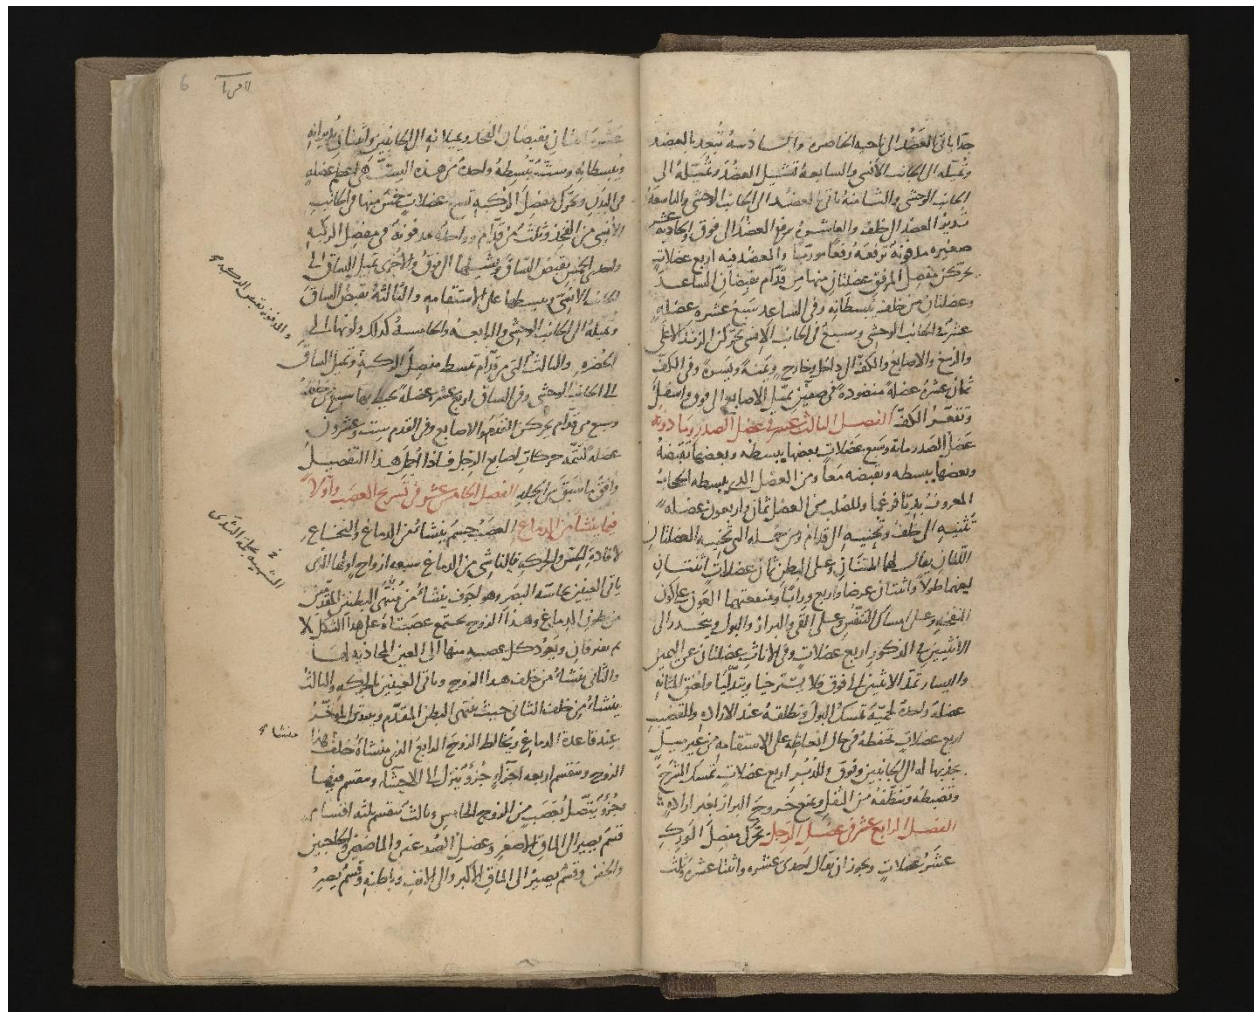 جدا ياتى العضد الى ناحيه الخاصره والسادسه تبعد العضد
وتميله الى الجانب الأنسى والسابعه تشيل العضد وتميله الى
الجانب الوحشى والثامنه تاتى بالعضد الى الجانب الوحشى والتاسعة
تدير العضد الى خلف والعاشره ترفع العضد الى فوق والحادية عشر
صغيره مدفونة ترفعه رفعا موربا والعضد فيه اربع عضلات
تحرك مفصل المرفق عضلتان منها من قدام يقبضان الساعد
وعضلتان من خلفه يبسطانه وفى الساعد سبع عشره عضله
عشر فى الجانب الوحشى وسبع فى الجانب الانسى تحركن الزند الاعلى
والرسغ والاصابع والكف الى داخل وخارج ويمنة ويسرة وفى الكف
ثمان عشرة عضلة منضودة فى صفين تميل الاصابع الى فوق واسفل
وتقعر الكف الفصل الثالث عشر فى عضل الصدر وما دونه
عضل الصدر مائة وسبع عضلات بعضها يبسطه وبعضها يقبضه
وبعضها يبسطه ويقبضه معا ومن العضل الذى يبسطه الحجاب
المعروف بديافرغما وللصلب من العضل ثمان واربعون عضله
تثنيه الى خلف وتحنيه الى قدام ومن جملة التى تحنيه العضلتان
اللتان يقال لهما المتنان وعلى البطن ثمان عضلات اثنتان
يعمها طولا واثنتان عرضا واربع ورابا ومنفعتهما العون على كون
النفخه وعلى امساك التنفس وعلى القى والبراز والبول وينحدر الى
الانثيين فى الذكور اربع عضلات وفى الاناث عضلتان عن اليمين
واليسار تمد الانثيين الى فوق فلا يسترخيا ويتدليا ولعنق المثانة
عضلة واحدة لحمية تمسك البول وتطلقه عند الاراده وللقضيب
اربع عضلات تحفظه فى حال انعاظه على الاستقامه من غير ميل
يجذبها له الى الجانبين وفوق وللدبر اربع عضلات تمسك الشرج
وتضبطه وتنظفه من الثفل ويمنع خروج البراز بغير ارادة
الفصل الرابع عشر فى عضل الرجل تحرك مفصل الورك
عشر عضلات ويجوز ان يقال احدى عشره واثنتا عشره وثلث
6
عشرة اثنان يقبضان الفخذ ويميلانه الى الجانبين واثنتان يديرانه
ويبسطانه وستة تبسطه واحدة من هذه الست هى اعظم عضله
فى البدن ويحرك مفصل الركبه تسع عضلات خمس منها فى الجانب
الأنسى من الفخذ وثلث من قدام وواحده مدفونة فى مفصل الركبه
واحدى الخمس يقبض الساق ويشيلها الى فوق والأخرى تميل الساق الى
الجانب الانسى ويبسطها على الاستقامه والثالثة يقبض الساق
وتميله الى الجانب الوحشى والرابعه والخامسة كذلك ولونهما الى
الخضره والثالث التى من قدام تبسط مفصل الركبة وتميل الساق
الى الجانب الوحشى وفى الساق اربع عشر عضلة تحيط بها سبع من خلف
وسبع من قدام يحركن القدم والاصابع وفى القدم ست وعشرون
عضله لتتمة حركات اصابع الرجل فاذا اجمل هذا التفصيل
وافق ما سبق من الجملة الفصل الخامس عشر فى تشريح العصب واولا
فيما ينشأ من الدماغ العصب جسم ينشاء من الدماغ والنخاع
لافادة الحس والحركه فالناشى من الدماغ سبعه ازواج اولها الذى
ياتى العينين بحاسة البصر وهو اجوف ينشاء من منتهى البطنين المقدمين
من بطون الدماغ وهذا الزوج يجتمع عصبتاه على هذا الشكل X
ثم يفترقان ويعود كل عصبه منها الى العين المحاذيه لها
والثانى ينشاء من خلف هذا الزوج وياتى العينين بالحركه والثالث
ينشاء من خلف الثانى حيث ينتهى البطن المقدم ويبتدى المؤخر
عند قاعدة الدماغ ويخالط الزوج الرابع الذى منشاه خلف هذا
الزوج وينقسم اربعه اجزاء جزؤ ينزل الى الاحشاء وينقسم فيها
وجزؤ يتصل بعصب من الزوج الخامس وثالث ينقسم ثلثه اقسام
قسم يصير الى الماق الاصغر وعضل الصدغين والماضغين والحاجبين
والجفن وقسم يصير الى الماق الاكبر والى الانف وباطنه وقسم يصير
والمدفونة تقبض الركبه
منشاه